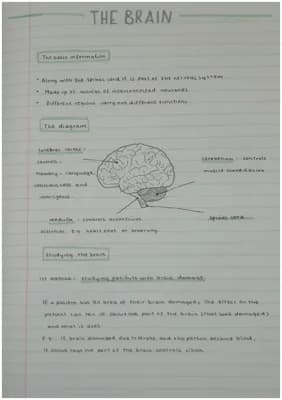 THE BRAIN
The basic information
• Along with the spinal cord it is part of the nervous system.
• Made up of billions of interconnected neurones.
• Different regions carry out different functions.
The diagram
Cerebral cortex :
controls
memory - language,
consciousness and
intelligence.
cerebellum : controls
muscle coordination
medulla : controls unconscious
activities. E.g heart beat or breathing.
spinal cord
Studying the brain
1st method : studying patients with brain damage
If a patient has an area of their brain damaged, the effect on the
patient can tell us about the part of the brain (that was damaged)
and what it does.
E.g. If brain damaged due to stroke and the person became blind,
it shows that the part of the brain controls vision.